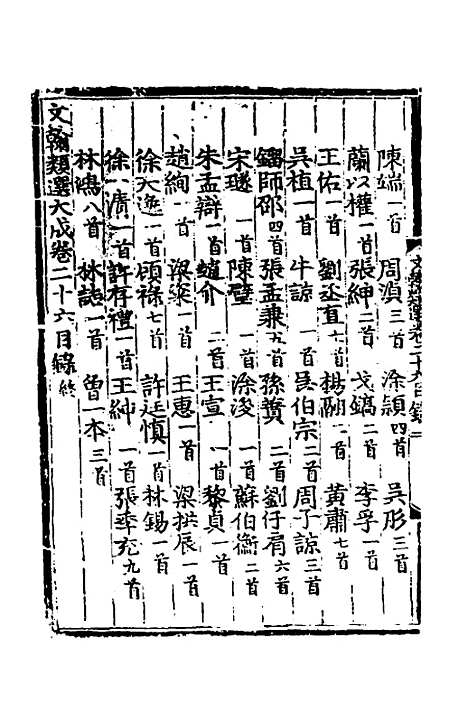 陳端一首 周瀆三首 涂頴四首 吳彤三首
蘭以權一首 張紳二首 戈鎬二首 李孚一首
王佑一首 劉丞直六首 楊翮一首 黃肅七首
吳植一首 牛諒一首 吳伯宗二首 周子諒三首
鎦師邵四首 張孟兼九首 孫蕡二首 劉仔肩六首
宋璲一首 陳璧一首 涂浚一首 蘇伯衡二首
朱孟辯一首 趙介二首 王宣一首 黎貞一首
趙絢一首 梁䆮一首 王惠一首 梁拱辰一首
徐大逸一首 頋祿七首 許廷慎一首 林錫一首
徐一濱一首 許存禮一首 王紳一首 張率充九首
林鴻八首 林誌一首 曾一本三首
文翰類選大成卷二十六目錄終